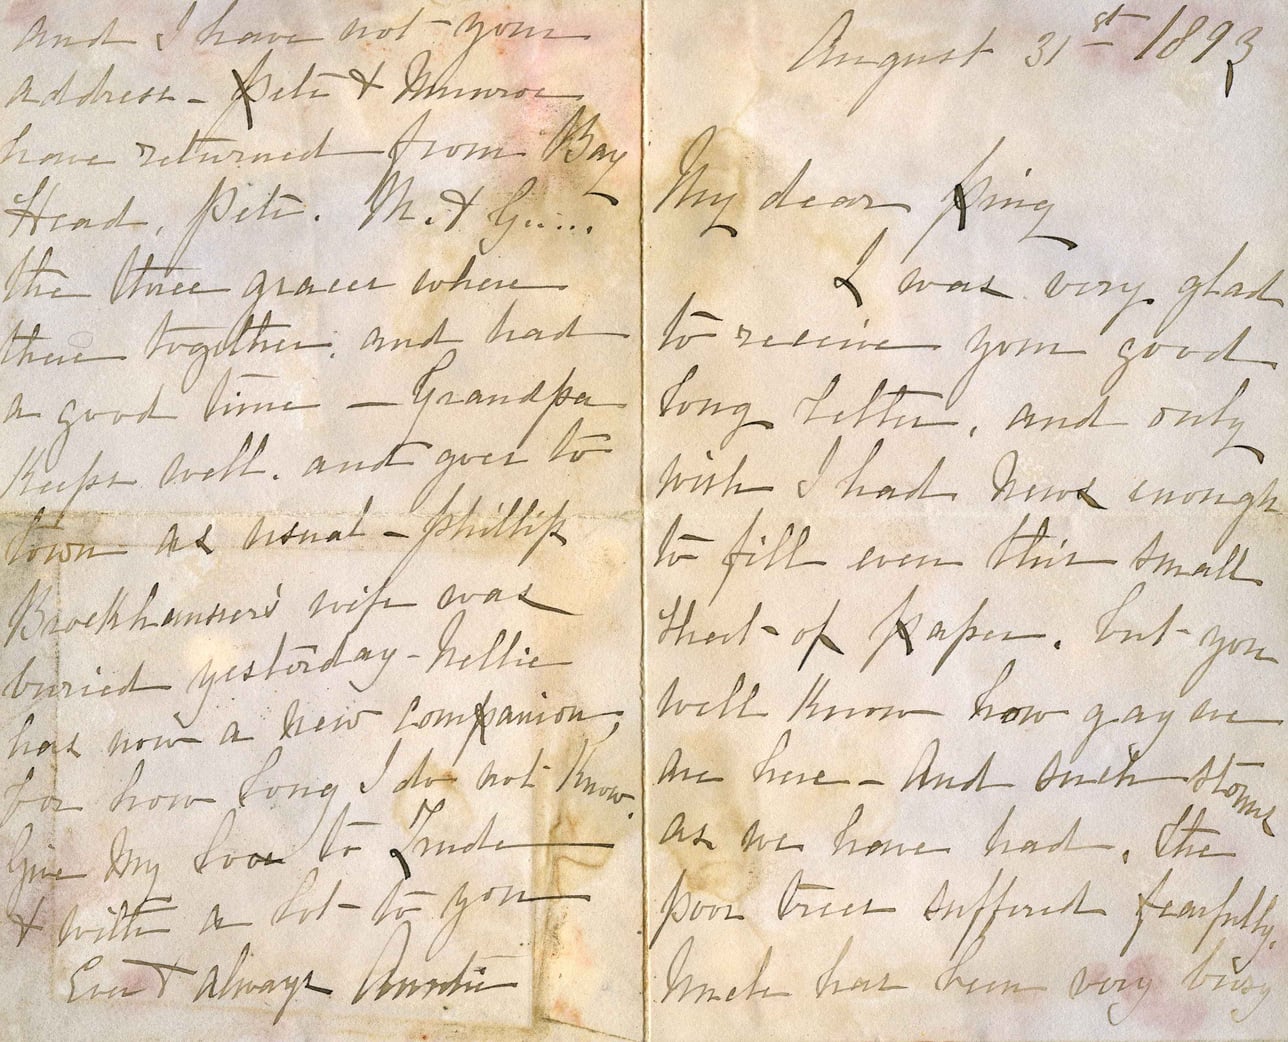 August 31st 1893
My dear Ping
I was very glad
to receive your good
long letter, and only
wish I had news enough
to fill even this small
sheet of paper. but you
well know how gay we
are here - And such storms
as we have had. the
poor trees suffered fearfully.
Uncle has been very busy
and I have not your
address - Pete & Munroe
have returned from Bay
Head, Pete. M. & G....
the three graces where
there together. and had
a good time - Grandpa
keeps well. and goes to
town as usual - Phillip
Brockhausser's wife was
buried yesterday - Nellie
has now a new companion
for how long I do not know.
Give my love to Trude
& with a lot to you
Ever & always Auntie